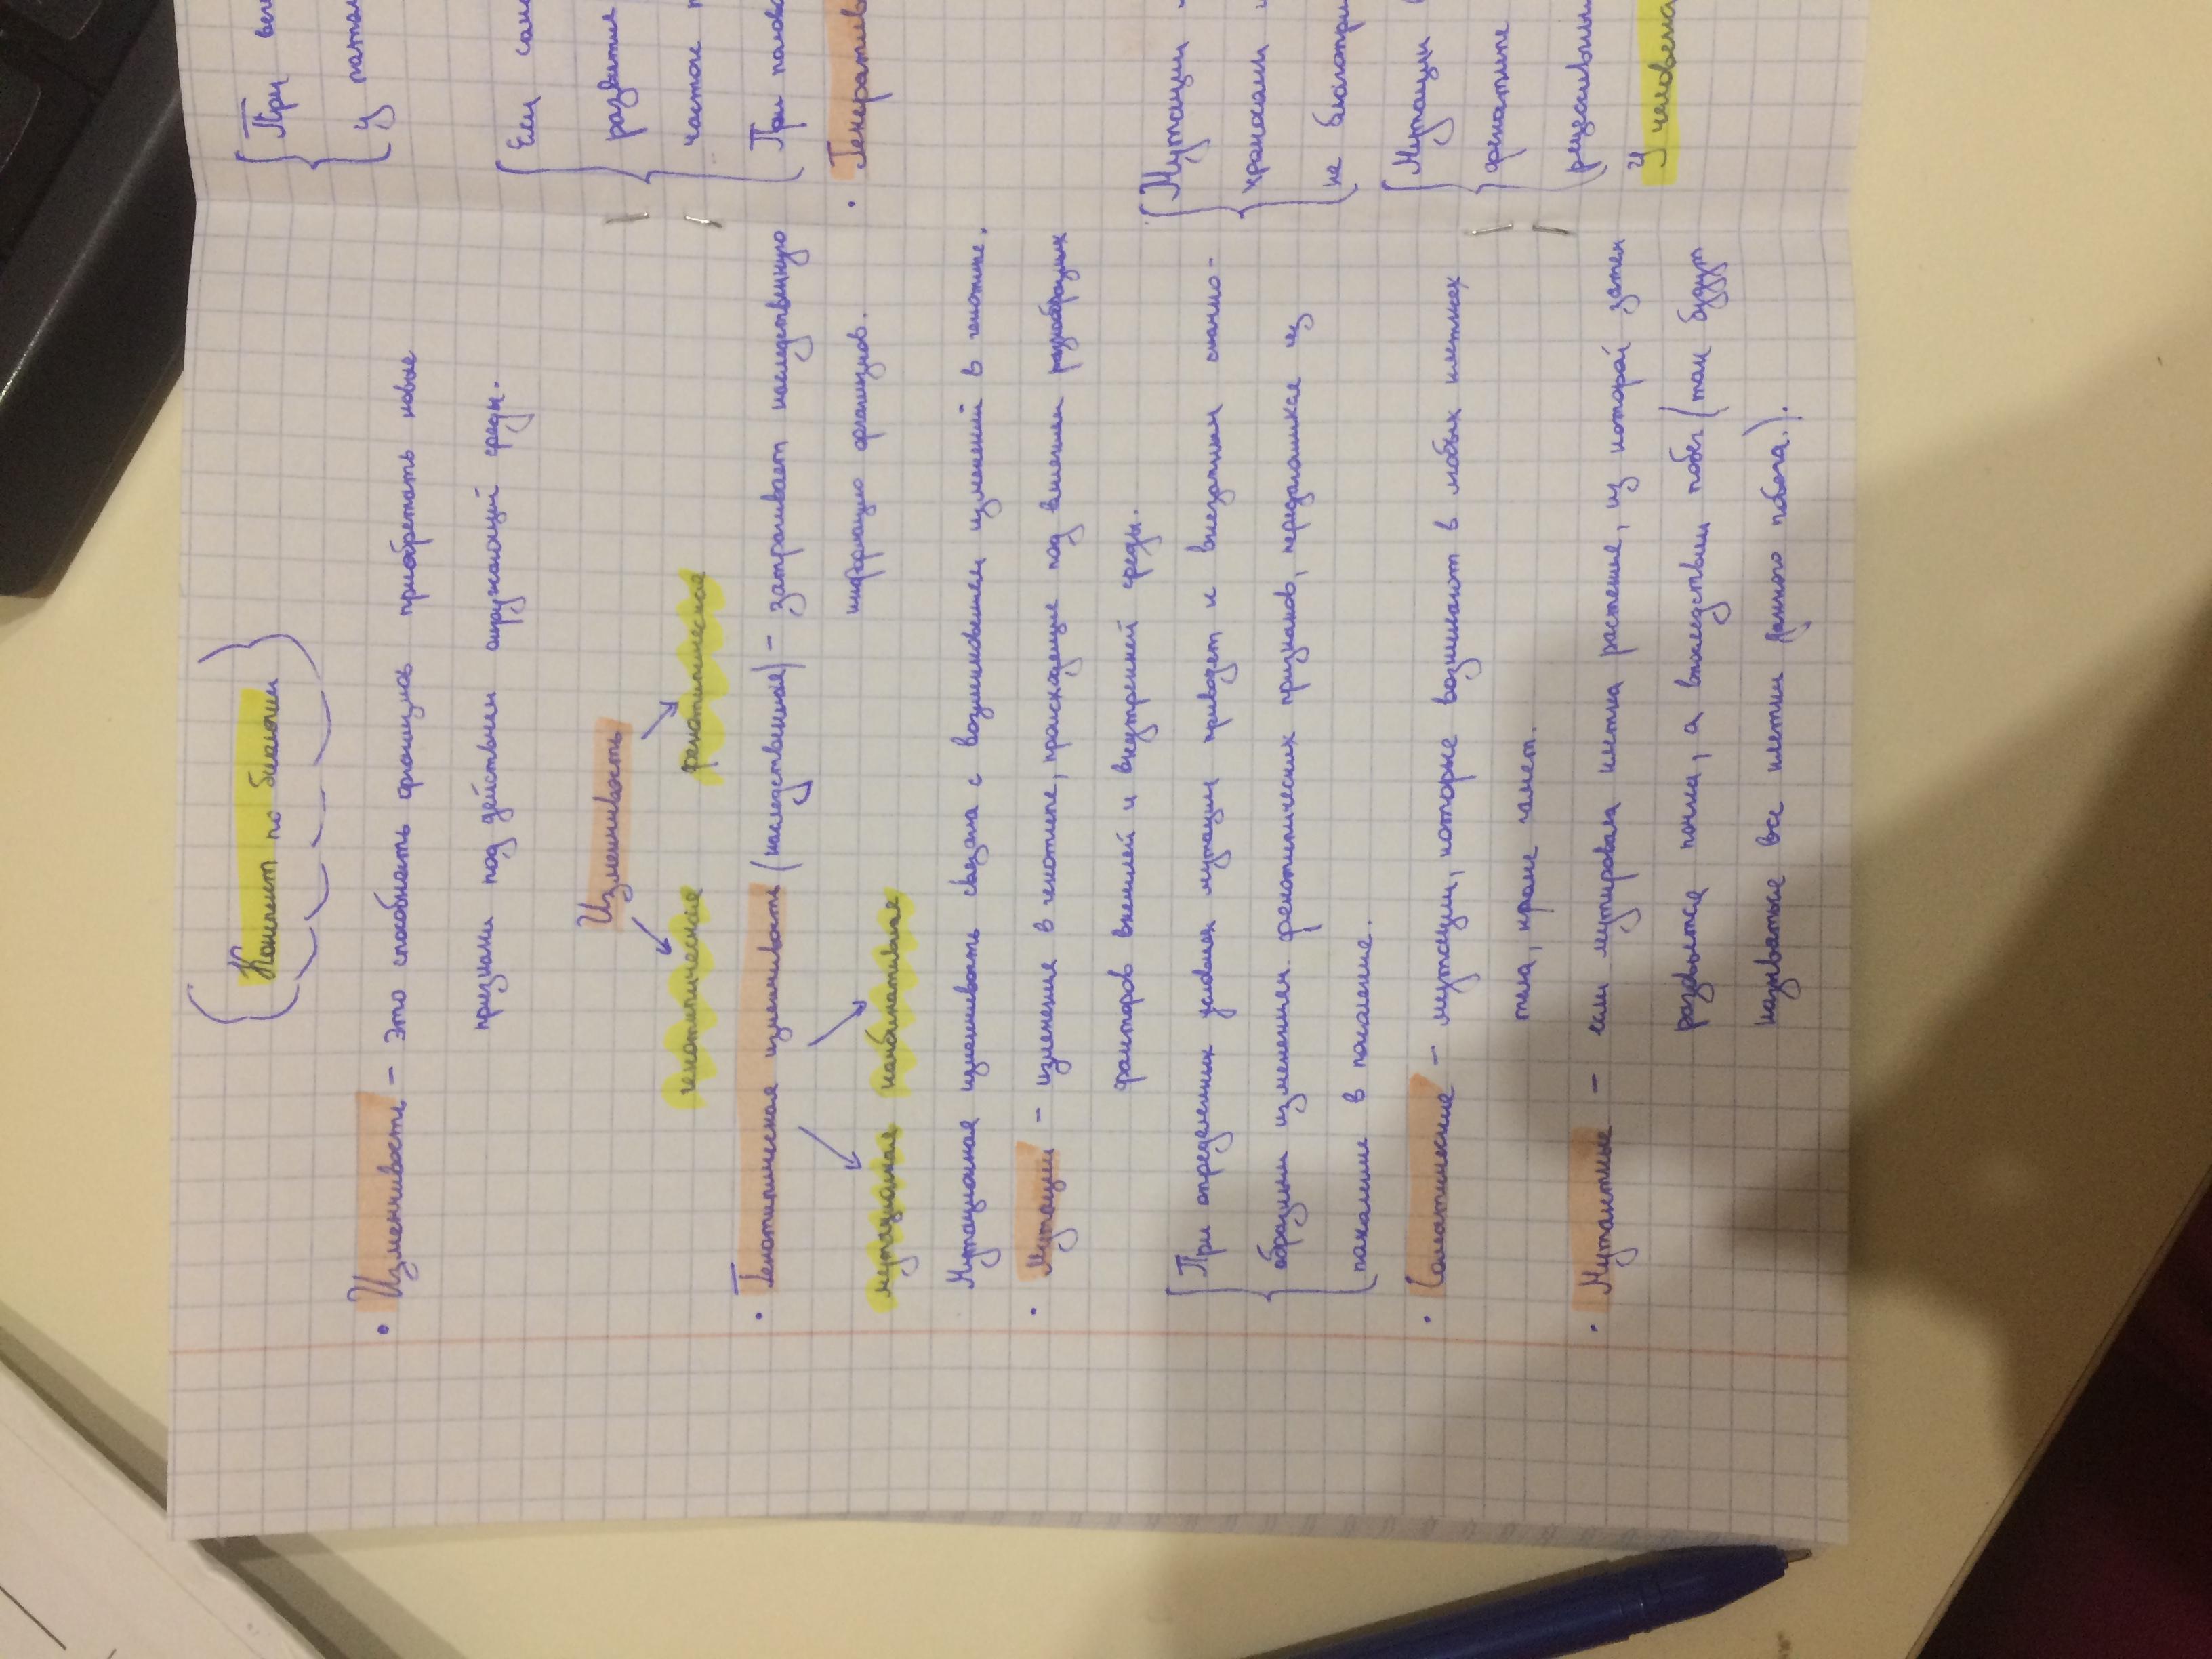 Конспект по биологии
• Изменчивость – это способность организмов приобретать новые
признаки под действием окружающей среды.
Изменчивость
генотипическая фенотипическая
• Генотипическая изменчивость (наследственная) – затрагивает наследственную
информацию организмов.
мутационная комбинативная
Мутационная изменчивость связана с возникновением изменений в генотипе.
• Мутации – изменение в генотипе, происходящие под влиянием разнообразных
факторов внешней и внутренней среды.
При определенных условиях мутации приводят к внезапным скачко-
образным изменениям фенотипических признаков, передающихся из
поколение в поколение.
• Соматические – мутации, которые возникают в любых клетках
тела, кроме гамет.
• Мутантные – если мутировала клетка растения, из которой затем
разовьется почка, а впоследствии побег (так будут
называться все клетки данного побега.).
При
у
Если
развитие
часток
При
• Генератив
Мутации
хромосом
не благопри
Мутации
фенотипе
рецессивны
У человека